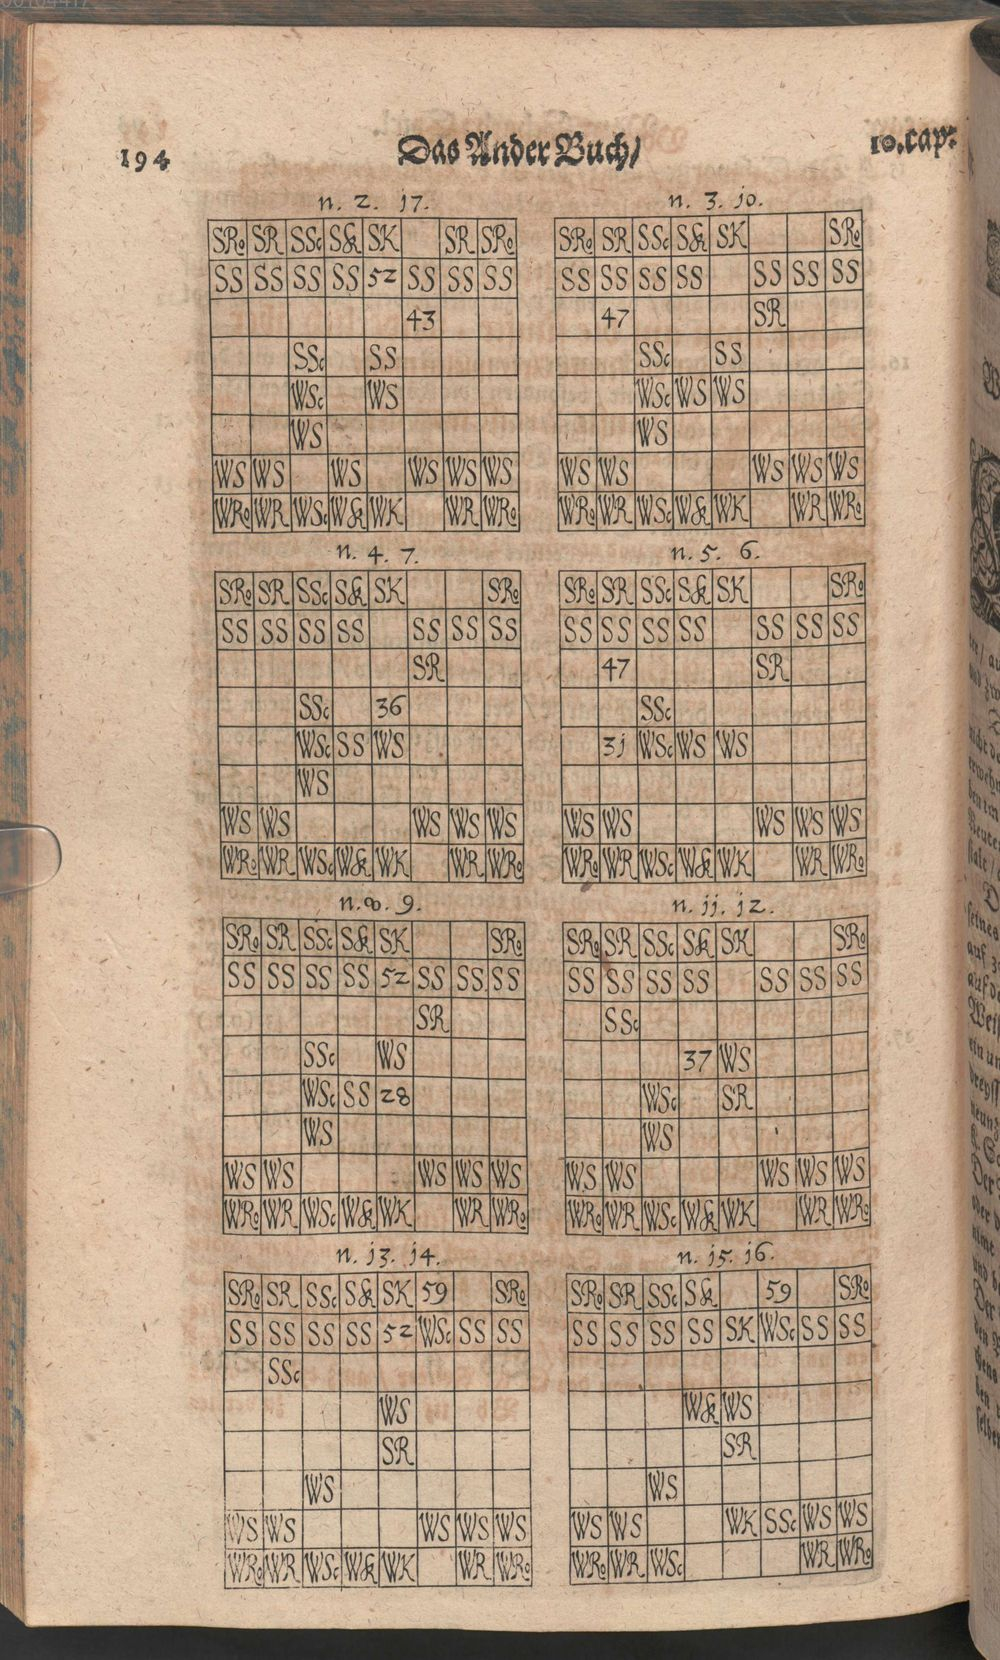 194 Das Ander Buch/ 10.cap:
n. 2. 17.
SRo SR SSc Sk SK SR SRo
SS SS SS SS 52 SS SS SS
43
SSc SS
WSc WS
WS
WS WS WS WS WS WS
WRo WR WSc Wk WK WR WRo
n. 3. 10.
SRo SR SSc Sk SK SRo
SS SS SS SS SS SS SS
47 SR
SSc SS
WSc WS WS
WS
WS WS WS WS WS
WRo WR WSc Wk WK WR WRo
n. 4. 7.
SRo SR SSc Sk SK SRo
SS SS SS SS SS SS SS
SR
SSc 36
WSc SS WS
WS
WS WS WS WS WS
WRo WR WSc Wk WK WR WRo
n. 5. 6.
SRo SR SSc Sk SK SRo
SS SS SS SS SS SS SS
47 SR
SSc
31 WSc WS WS
WS WS WS WS WS
WRo WR WSc Wk WK WR WRo
n. 8. 9.
SRo SR SSc Sk SK SRo
SS SS SS SS 52 SS SS SS
SR
SSc WS
WSc SS 28
WS
WS WS WS WS WS
WRo WR WSc Wk WK WR WRo
n. 11. 12.
SRo SR SSc Sk SK SRo
SS SS SS SS SS SS SS
SSc
37 WS
WSc SR
WS
WS WS WS WS WS
WRo WR WSc Wk WK WR WRo
n. 13. 14.
SRo SR SSc Sk SK 59 SRo
SS SS SS SS 52 WSc SS SS
SSc
WS
SR
WS
WS WS WS WS WS
WRo WR WSc Wk WK WR WRo
n. 15. 16.
SRo SR SSc Sk 59 SRo
SS SS SS SS SK WSc SS SS
Wk WS
SR
WS
WS WS WK SSc WS WS
WRo WR WSc WR WRo